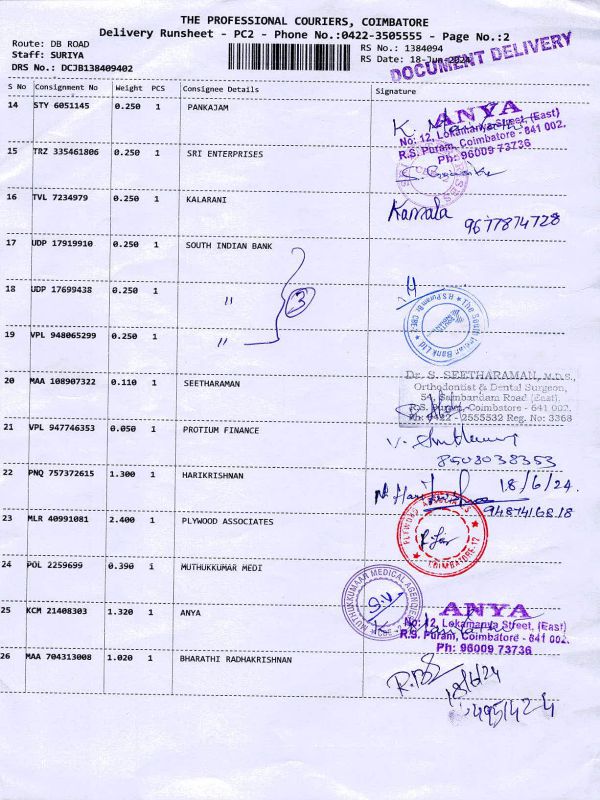 THE PROFESSIONAL COURIERS, COIMBATORE
Delivery Runsheet - PC2 - Phone No.:0422-3505555 - Page No.:2
Route: DB ROAD
RS No.: 1384094
Staff: SURIYA
RS Date: 18-Jun-2024
DRS No.: DCJB138409402
DOCUMENT DELIVERY
S No Consignment No Weight PCS Consignee Details Signature
14 STY 6051145 0.250 1 PANKAJAM
ANYA
No: 12, Lokamanya Street, (East)
R.S. Puram, Coimbatore - 641 002.
Ph: 96009 73736
15 TRZ 335461806 0.250 1 SRI ENTERPRISES
16 TVL 7234979 0.250 1 KALARANI
Kamala
9677874728
17 UDP 17919910 0.250 1 SOUTH INDIAN BANK
18 UDP 17699438 0.250 1 "
3
The South Indian Bank Ltd
R S Puram Br.
CBE-2
19 VPL 948065299 0.250 1 "
20 MAA 108907322 0.110 1 SEETHARAMAN
Dr. S. SEETHARAMAN, M.D.S.,
Orthodontist & Dental Surgeon,
54, Sambandam Road (East),
R.S. Puram, Coimbatore - 641 002.
Ph: 0422 - 2555532 Reg. No: 3368
21 VPL 947746353 0.050 1 PROTIUM FINANCE
8508038353
22 PNQ 757372615 1.300 1 HARIKRISHNAN
18/6/24.
9487416818
23 MLR 40991081 2.400 1 PLYWOOD ASSOCIATES
PLYWOOD ASSOCIATES
COIMBATORE-12
24 POL 2259699 0.390 1 MUTHUKKUMAR MEDI
MUTHUKKUMAAR MEDICAL AGENCIES
CBE-2
25 KCM 21408303 1.320 1 ANYA
ANYA
No: 12, Lokamanya Street, (East)
R.S. Puram, Coimbatore - 641 002.
Ph: 96009 73736
26 MAA 704313008 1.020 1 BHARATHI RADHAKRISHNAN
18/6/24